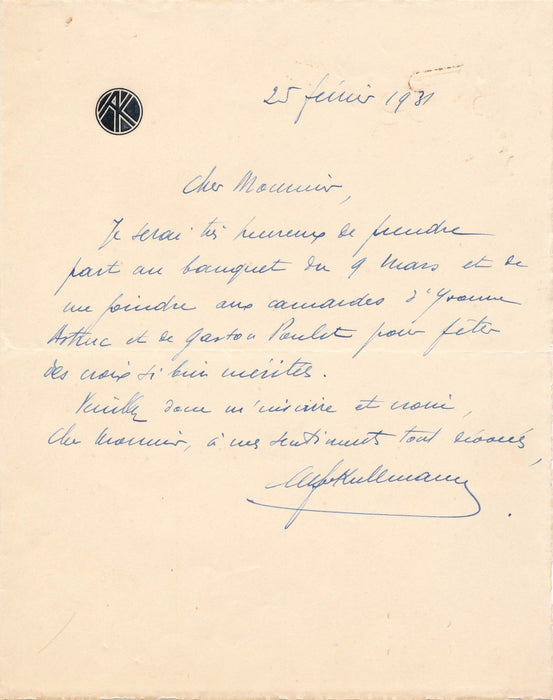 AK
25 février 1931
Cher Monsieur,
Je serai très heureux de prendre
part au banquet du 9 Mars et de
me joindre aux camarades d'Yvonne
Astruc et de Gaston Poulet pour fêter
des croix si bien mérités.
Veuillez donc m'inscrire et croire,
Cher Monsieur, à mes sentiments tout dévoués,
Alf Kullmann